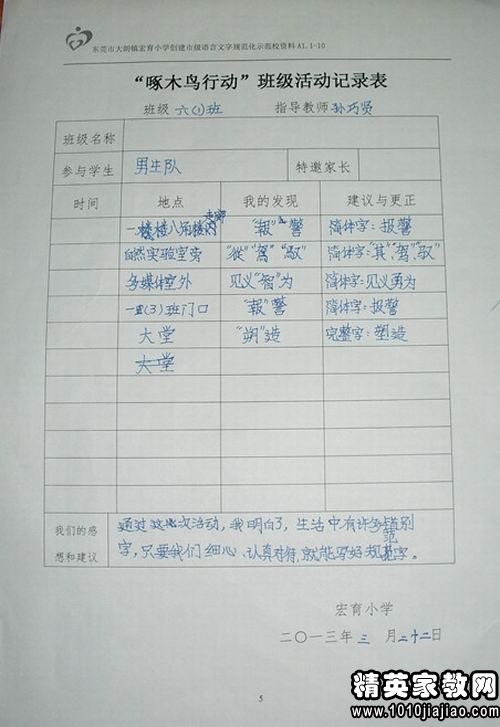 东莞市大朗镇宏育小学创建市级语言文字规范化示范校资料A1.1-10
“啄木鸟行动”班级活动记录表
班级 六(1)班 指导教师 孙巧贤
班级名称
参与学生 男生队 特邀家长
时间 地点 我的发现 建议与更正
一楼楼八角楼内 “報”警 简体字:报警
自然实验室旁 简体字:“其”“驾”“驭”
多媒体室外 见义“智”为 简体字:见义勇为
(3)班门口 “報”警 简体字:报警
大堂 “朔”造 完整字:塑造
大堂
我们的感想和建议
通过这次活动,我明白了,生活中有许多错别
字,只要我们细心、认真对待,就能写好规范字。
宏育小学
二〇一三年 三 月 二十二日
5
精英家教网
www.1010jiajiao.com